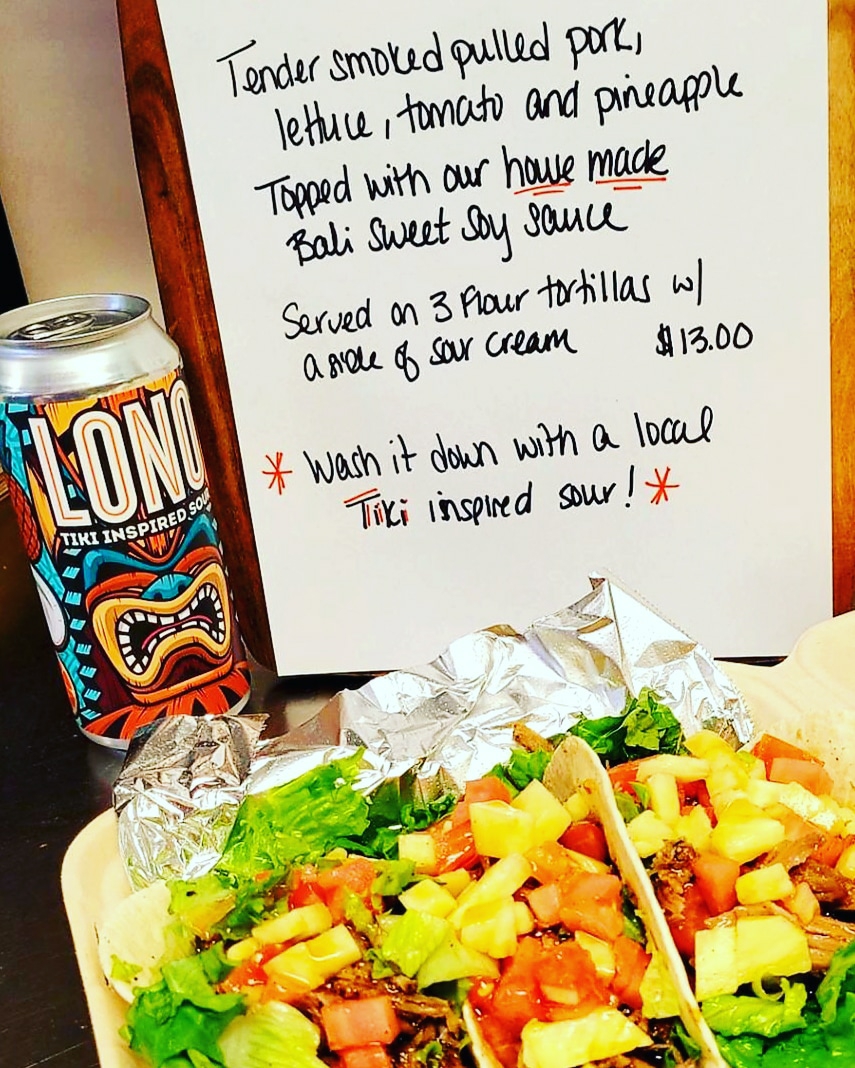 Tender smoked pulled pork,
lettuce, tomato and pineapple
Topped with our house made
Bali Sweet Soy Sauce
Served on 3 Flour tortillas w/
a side of sour cream $13.00
* Wash it down with a local
Tiki inspired sour! *
LONO
TIKI INSPIRED